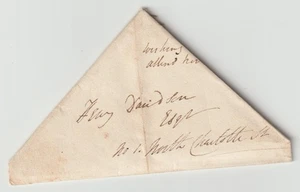 wishing
attend
Davidson
Esqr
No 1. North Charlotte St